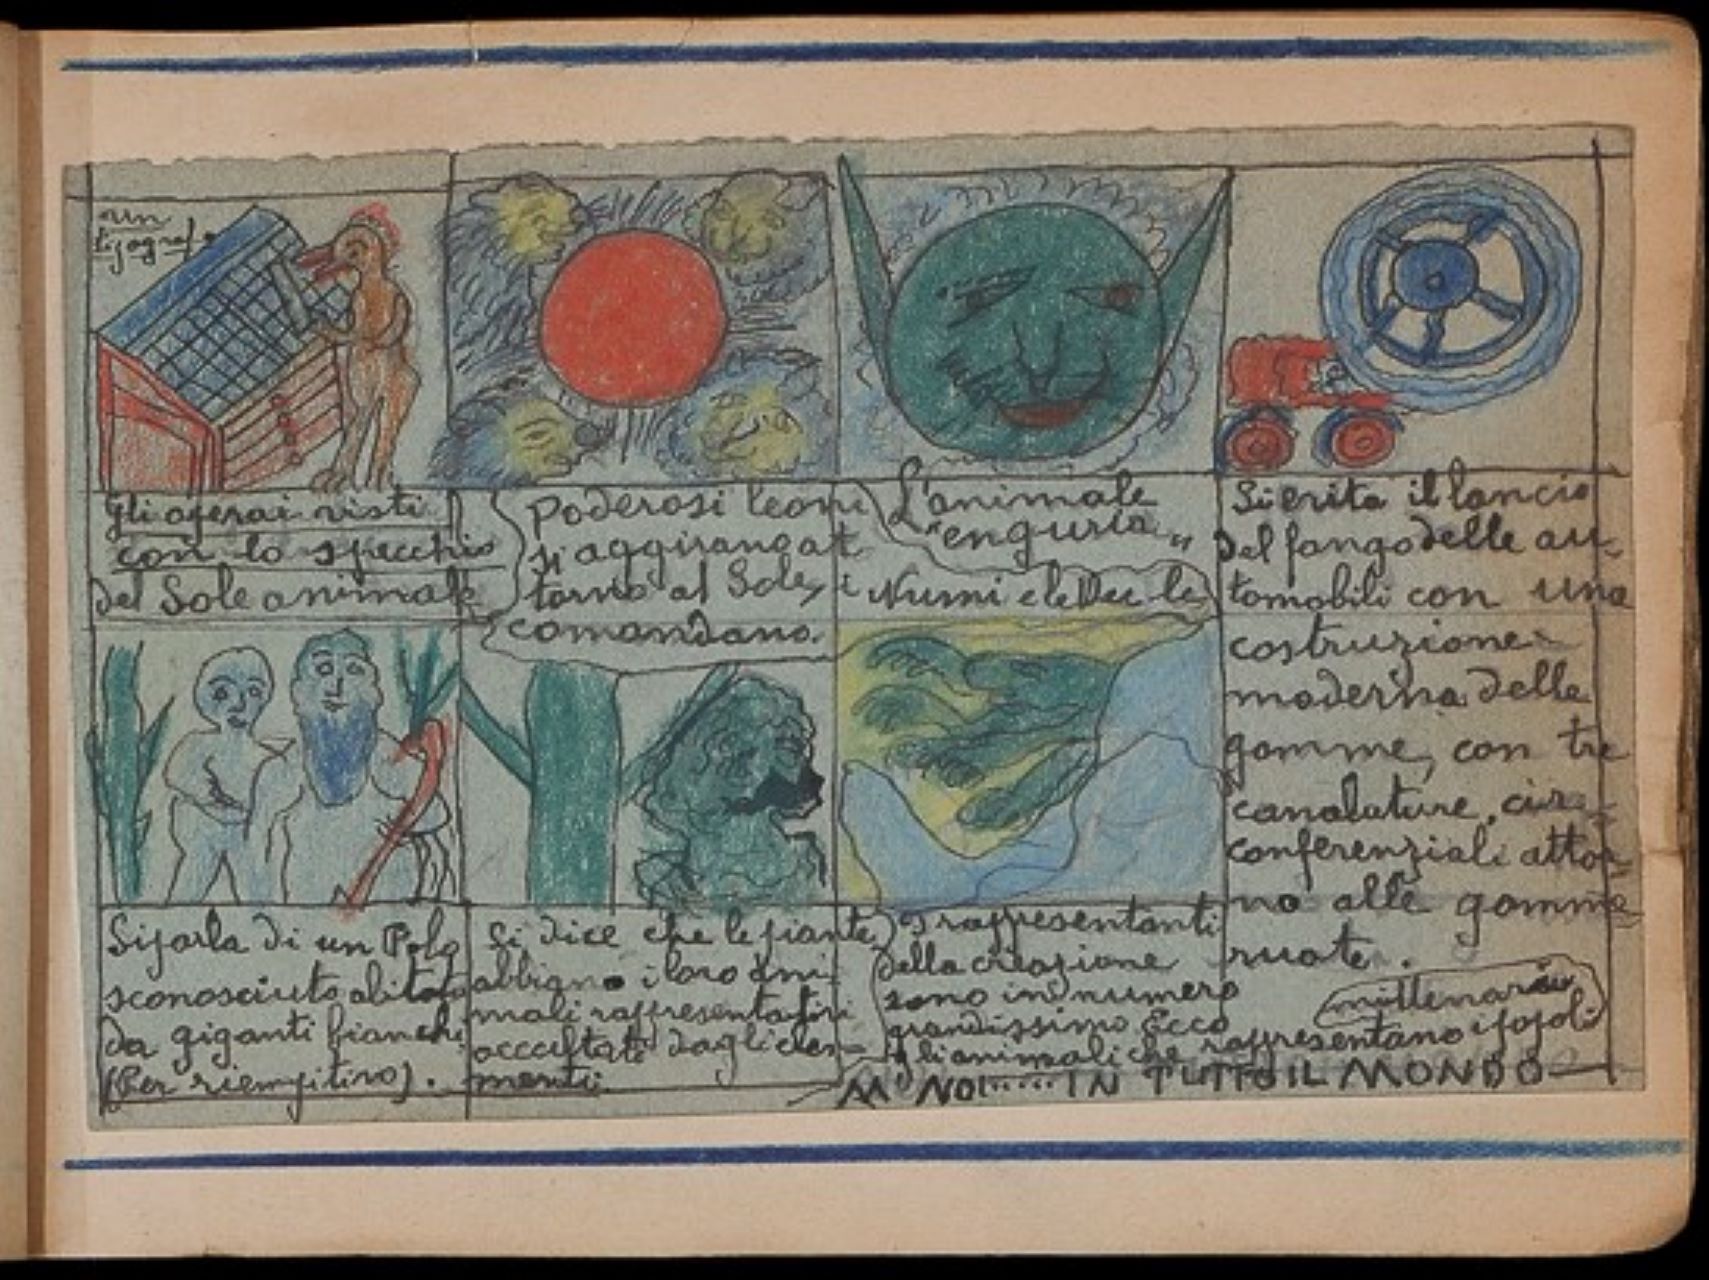 un
tipografo
Gli operai visti
con lo specchio
del Sole animale
Poderosi leoni
si aggirano at-
torno al Sole, i
comandano.
L'animale
"enguria"
i Numi e le Dee le
Si evita il lancio
del fango delle au-
tomobili con una
costruzione
moderna delle
gomme, con tre
canalature, cir-
conferenziali attor-
no alle gomme
ruote.
Si parla di un Polo
sconosciuto abitato
da giganti bianchi
(Per riempitivo).
Si dice che le piante
abbiano i loro ani-
mali rappresentativi
occultati dagli ele-
menti
I rappresentanti
della creazione
sono in numero
grandissimo Ecco
gli animali che rappresentano i popoli
millenario
NOI...... IN TUTTO IL MONDO